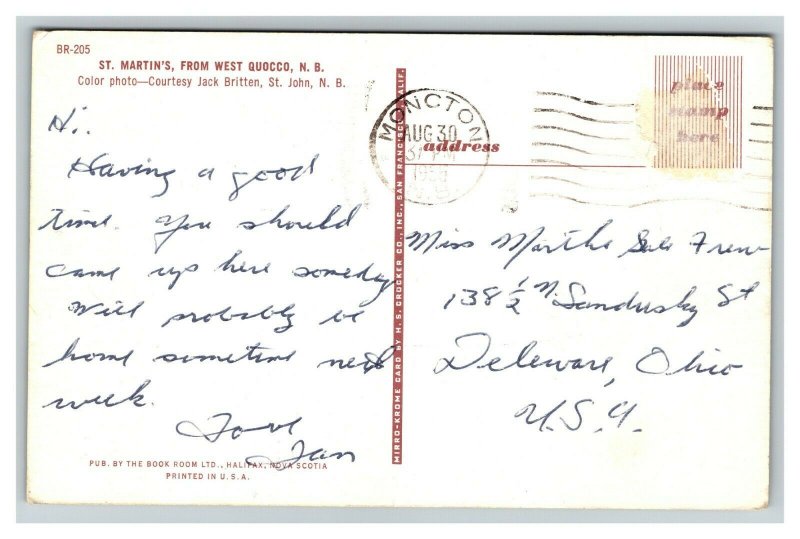 BR-205
ST. MARTIN'S, FROM WEST QUOCCO, N. B.
Color photo—Courtesy Jack Britten, St. John, N. B.
Hi.
Having a good
time. You should
come up here someday
Will probably be
home sometime next
week.
Love
Jan
PUB. BY THE BOOK ROOM LTD., HALIFAX, NOVA SCOTIA
PRINTED IN U. S. A.
MIRRO-KROME CARD BY H. S. CROCKER CO., INC., SAN FRANCISCO, CALIF.
MONCTON
AUG 30
PM
place
stamp
here
address
Miss Martha Sue Frew
138 ½ N. Sandusky St
Deleware, Ohio
U.S.A.